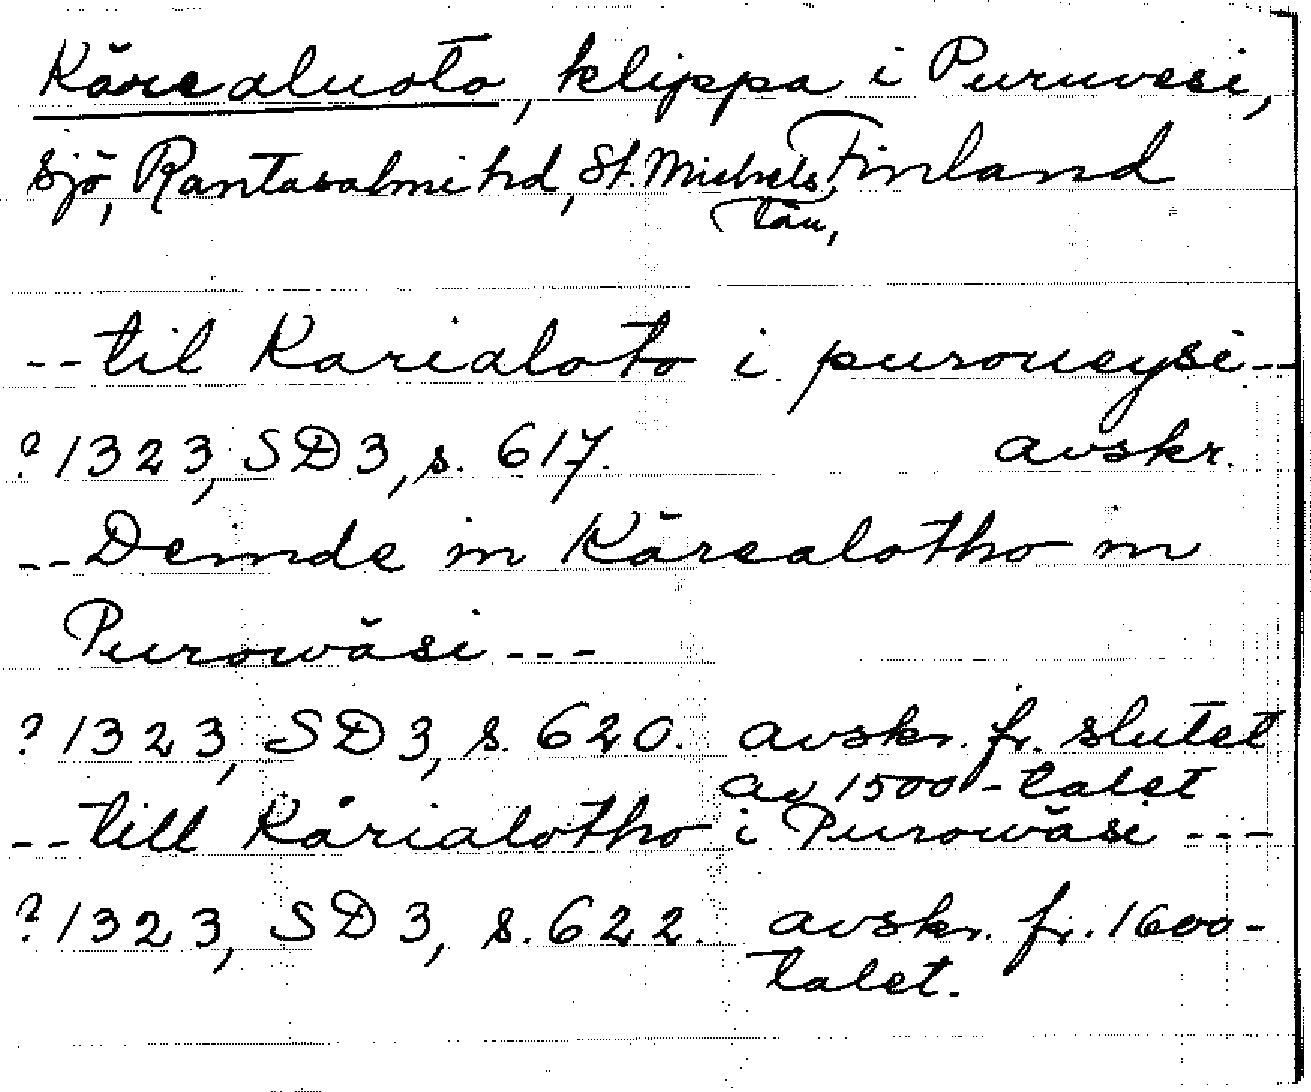 Käreealuoto, klippa i Puruvesi,
sjö, Rantasalmi hd, St. Michels Finland
län,
--til Karialoto i puroueysi--
?1323, SD3, s. 617. avskr.
--Deinde in Kärealotho in
Purowäsi---
?1323, SD3, s. 620. avskr. fr. slutet
av 1500-talet
--till Kårialotho i Purowäsi---
?1323, SD3, s. 622. avskr. fr. 1600-
talet.